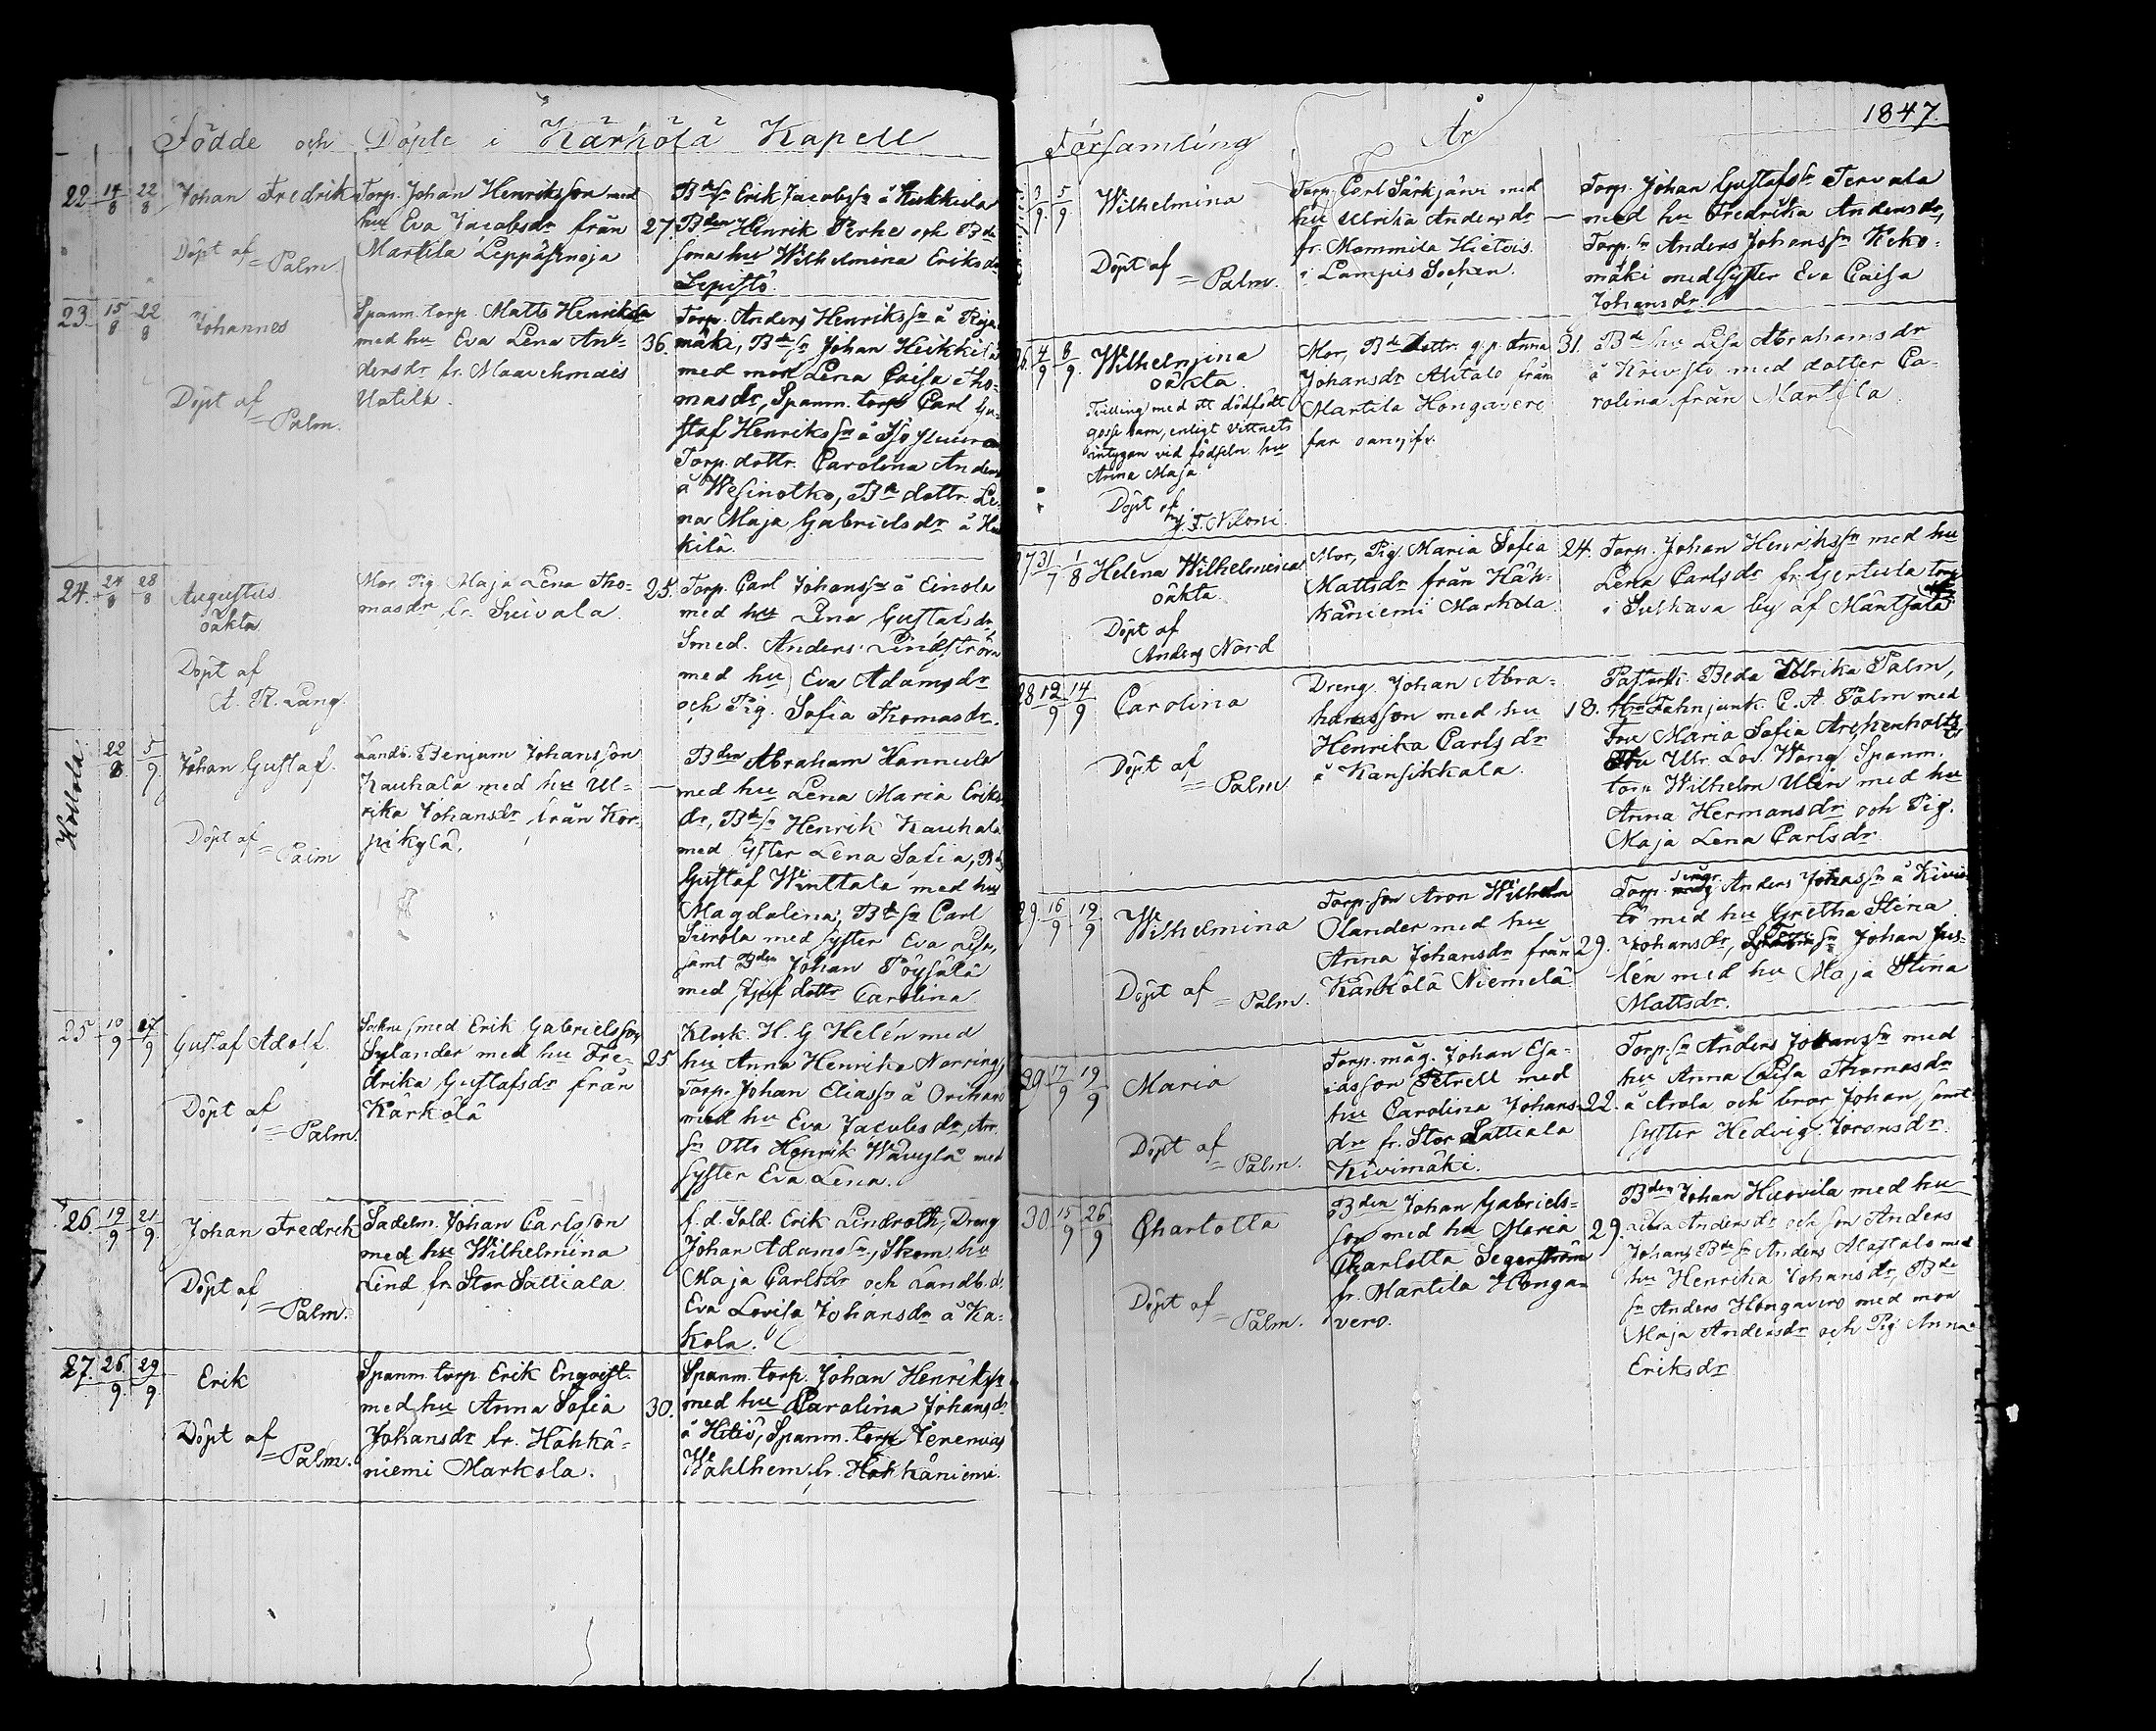 Födde och Döpte i Kärkölä Kapell
22. 14/8 22/8 Johan Fredrik
Döpt af
= Palm.
Torp. Johan Henriksson med
hu Eva Jacobsdr från
Martila Leppäsenoja
27.
Bde Sn Erik Jacobssn å Hukkula
Bden Henrik Perhe och Bde
sonas hu Wilhelmina Eriksdr
Sepistö.
23. 15/8 22/8 Johannes
Döpt af
= Palm.
Spanm. torp. Matts Henriksson
med hu Eva Lena An=
dersdr fr. Maavehmais
Uotila.
36.
Torp. Anders Henrikssn å
mäki, Bde Sn Johan Heikkilä
med mor Lena Caisa Tho=
masdr, Spanm. torp Carl Gu=
staf Henrikssn å
Torp. dottr. Carolina Anders
å Wesinotko, Bde dottr. Le=
na Maja Gabrielsdr å
kilä.
24. 24/8 28/8 Augustus
oäkta
Döpt af
A. R. Lang.
Mor, Pig. Maja Lena Tho=
masdr fr.
25.
Torp. Carl Johanssn å Einola
med hu Lena Gustafsdr
Smed. Anders Lindström
med hu Eva Adamsdr
och Pig. Sofia Thomasdr.
Koskis
22/8 5/9 Johan Gustaf.
Döpt af
= Palm
Landb. Benjam Johansson
Kauhala med hu Ul=
rika Johansdr från Kor=
pikylä.
—
Bden Abraham Hannula
med hu Lena Maria Eriks
dr, Bde Sn Henrik Kauhala
med syster Lena Sofia, Bde
Gustaf Winttala med hu
Magdalina, Bde Sn Carl
Siirola med syster Eva Lisa,
samt Bden Johan Töysälä
med styf dottr Carolina
25 10/9 17/9 Gustaf Adolf.
Döpt af
= Palm.
Sockne smed Erik Gabrielsson
Sylander med hu Fre=
drika Gustafsdr från
Kärkölä
25
Klock. H. G. Helén med
hu Anna Henrika Norring,
Torp. Johan Eliassn å
med hu Eva Jacobsdr,
sn Otto Henrik Wäwylä med
syster Eva Lena.
26. 19/9 21/9 Johan Fredrik
Döpt af
= Palm.
Sadelm. Johan Carlsson
med hu Wilhelmina
Lind fr. Stor Sattiala
f. d. Sold. Erik Lindroth, Dreng
Johan Adamssn, Skom. hu
Maja Carlsdr och Landb. dr
Eva Lovisa Johansdr å Ka=
kola.
27. 26/9 29/9 Erik
Döpt af
= Palm.
Spanm. torp Erik Enqvist.
med hu Anna Sofia
Johansdr fr. Hähkä=
niemi Markola.
30.
Spanm. torp. Johan Henrikssn
med hu Carolina Johansdr
å Hitiö, Spanm. torp Jeremias
Wahlhem fr. Hähkäniemi.
Församling År 1847.
3/9 5/9 Wilhelmina
Döpt af
= Palm.
Torp. Carl Särkjärvi med
hu Ulrika Andersdr
fr. Mommila Hietois
i Lampis Socken.
—
Torp. Johan Gustafssn Tervala
med hu Fredrika Andersdr,
Torp. sn Anders Johanssn Keko=
mäki med syster Eva Caisa
Johansdr
26. 4/9 8/9 Wilhelmina
oäkta.
Tvilling med ett dödfödt
gosse barn, enligt vittnets
intygan vid födseln hu
Anna Maja
Döpt af
J. F. Niloni.
Mor, Bde Dottr. g. p. Anna
Johansdr Alitalo från
Martila Hongavero
far oangifv.
31.
Bde hu Lisa Abrahamsdr
å Krivsto med dotter Ca=
rolina från Martila.
27 31/7 1/8 Helena Wilhelmina
oäkta.
Döpt af
Anders Nord
Mor, Pig. Maria Sofia
Mattsdr från Häh=
käniemi Markola
24.
Torp. Johan Henrikssn med hu
Lena Carlsdr fr. Gertula torp
i Sulkava by af Mäntsälä
28 12/9 14/9 Carolina
Döpt af
= Palm.
Dreng. Johan Abra=
hamsson med hu
Henrika Carlsdr
å Kansikkala.
18.
Beda Ulrika Palm,
Hr Fahnjunk. C. A. Palm med
Fru Maria Sofia Archenholtz
Ulr. Lov. Wang, Spanm.
torp Wilhelm Ulin med hu
Anna Hermansdr och Pig.
Maja Lena Carlsdr
29. 16/9 19/9 Wilhelmina
Döpt af
= Palm.
Torp. son Aron Wilhelm
Olander med hu
Anna Johansdr från
Kärkölä Niemelä
29.
Torp. Anders Johanssn å
tö med hu Gretha Stina
Johansdr, Torp. sn Johan
lén med hu Maja Stina
Mattsdr.
29 17/9 19/9 Maria
Döpt af
= Palm.
Torp. måg. Johan Esa=
iasson Petrell med
hu Carolina Johans=
dr fr. Stor Sattiala
Kivimäki.
22.
Torp. sn Anders Johanssn med
hu Anna Lisa Thomasdr
å Arola och bror Johan, samt
syster Hedvig Joronsdr.
30. 15/9 26/9 Charlotta
Döpt af
= Palm.
Bden Johan Gabriels=
son med hu Maria
Charlotta Segerström
fr. Martila Honga=
vero.
29.
Bden Johan Huovila med hu
Andersdr och son Anders
Johans, Bde sn Anders Alastalo med
hu Henrika Johansdr, Bde
sn Anders Hongavero med mor
Maja Andersdr och Pig Anna
Eriksdr